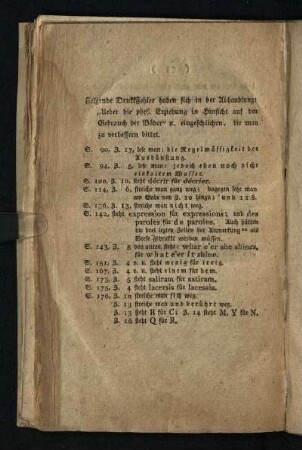 Folgende Druckfehler haben sich in der Abhandlung:
„Ueber die phys. Erziehung in Hinsicht auf den
Gebrauch der Bäder“ u. eingeschlichen, die man
zu verbessern bittet.
S. 90, Z. 17, lese man: die Regelmässigkeit der
Ausdünstung.
S. 94, Z. 5, lese man: jedoch eben noch nicht
eiskaltem Wasser.
S. 100, Z. 10, steht décrit für décrier.
S. 114, Z. 6, streiche man ganz weg; dagegen setze man
am Ende von Z. 10 hinzu: und
S. 136, Z. 13, streiche man nicht weg.
S. 142, steht expression für expressions, und des
paroles für de paroles. Auch hätten
die drei letzten Zeilen der Anmerkung als
Verse gedruckt werden müssen.
S. 143, Z. 8 von unten, steht: whar e'er she shines,
für what e'er it shine.
S. 151, Z. 4 v. u. steht wenig für
S. 167, Z. 7 v. u. steht einem für dem.
S. 175, Z. 5 steht saliram für satiram.
S. 175, Z. 4 steht lacersia für lacessia.
S. 176, Z. 12 streiche man sich weg.
Z. 13 streiche man und berühre weg.
Z. 13 steht R für C; Z. 14 steht M, Y für N.
Z. 16 steht Q für R.